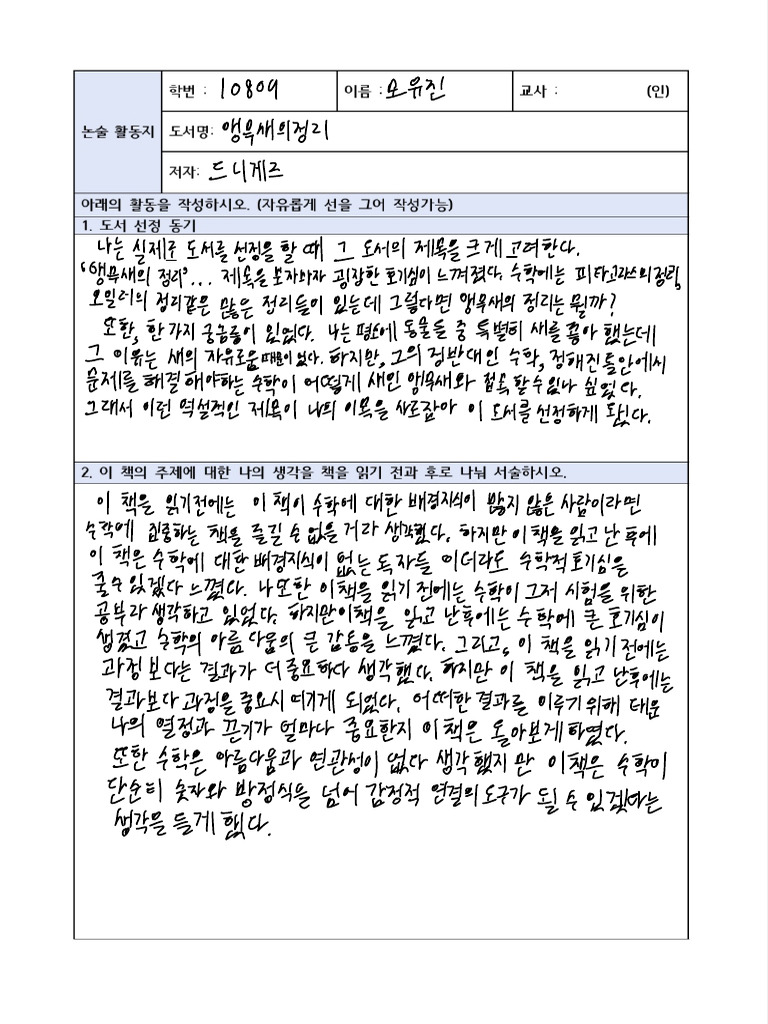 논술 활동지
학번 : 10809 이름 : 오유진 교사 : (인)
도서명: 앵무새의정리
저자: 드니게즈
아래의 활동을 작성하시오. (자유롭게 선을 그어 작성가능)
1. 도서 선정 동기
나는 실제로 도서를 선정을 할 때 그 도서의 제목을 크게 고려한다.
'앵무새의 정리'... 제목을 보자마자 굉장한 호기심이 느껴졌다. 수학에는 피타고라스의 정리,
오일러의 정리같은 많은 정리들이 있는데 그렇다면 앵무새의 정리는 뭘까?
또한, 한가지 궁금증이 있었다. 나는 평소에 동물들 중 특별히 새를 좋아 했는데
그 이유는 새의 자유로움 때문이었다. 하지만, 그의 정반대인 수학, 정해진틀안에서
문제를 해결 해야하는 수학이 어떻게 새인 앵무새와 접목 할 수 있나 싶었다.
그래서 이런 역설적인 제목이 나의 이목을 사로잡아 이 도서를 선정하게 되었다.
2. 이 책의 주제에 대한 나의 생각을 책을 읽기 전과 후로 나눠 서술하시오.
이 책을 읽기전에는 이 책이 수학에 대한 배경지식이 많지 않은 사람이라면
수학에 집중하는 책을 즐길 수 없을 거라 생각했다. 하지만 이책을 읽고 난 후에
이 책은 수학에 대한 배경지식이 없는 독자들 이더라도 수학적호기심을
줄수 있겠다 느꼈다. 나또한 이책을 읽기 전에는 수학이 그저 시험을 위한
공부라 생각하고 있었다. 하지만이책을 읽고 난후에는 수학에 큰 호기심이
생겼고 수학의 아름다움의 큰 감동을 느꼈다. 그리고, 이 책을 읽기 전에는
과정 보다는 결과가 더 중요하다 생각했다. 하지만 이 책을 읽고 난후에는
결과보다 과정을 중요시 여기게 되었다. 어떠한 결과를 이루기 위해 태운
나의 열정과 끈기가 얼마나 중요한지 이책은 돌아보게하였다.
또한 수학은 아름다움과 연관성이 없다 생각했지 만 이책은 수학이
단순히 숫자와 방정식을 넘어 감정적 연결의 도구가 될 수 있겠다는
생각을 들게 했다.